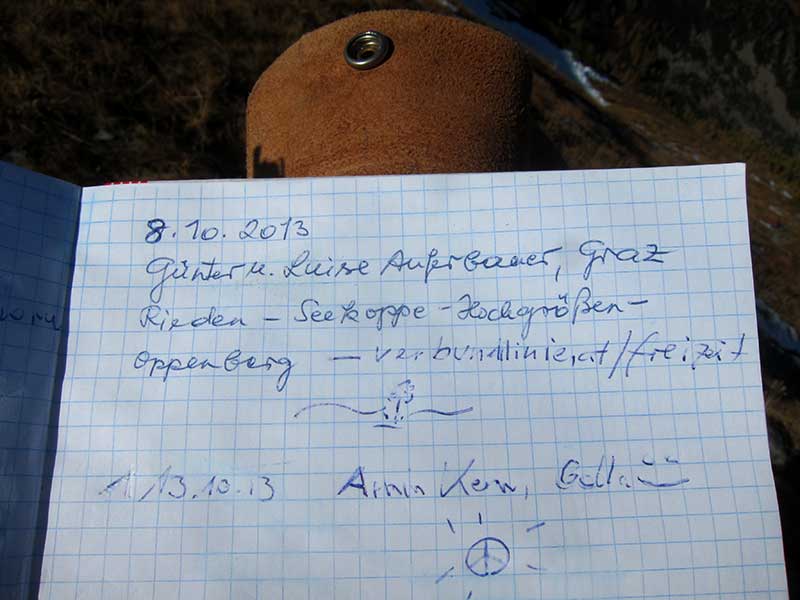 8.10.2013
Günter u. Luise Auferbauer, Graz
Rieden - Seekoppe - Hochgrößen -
Oppenberg — verbundliniert/freizeit
13.10.13 Armin